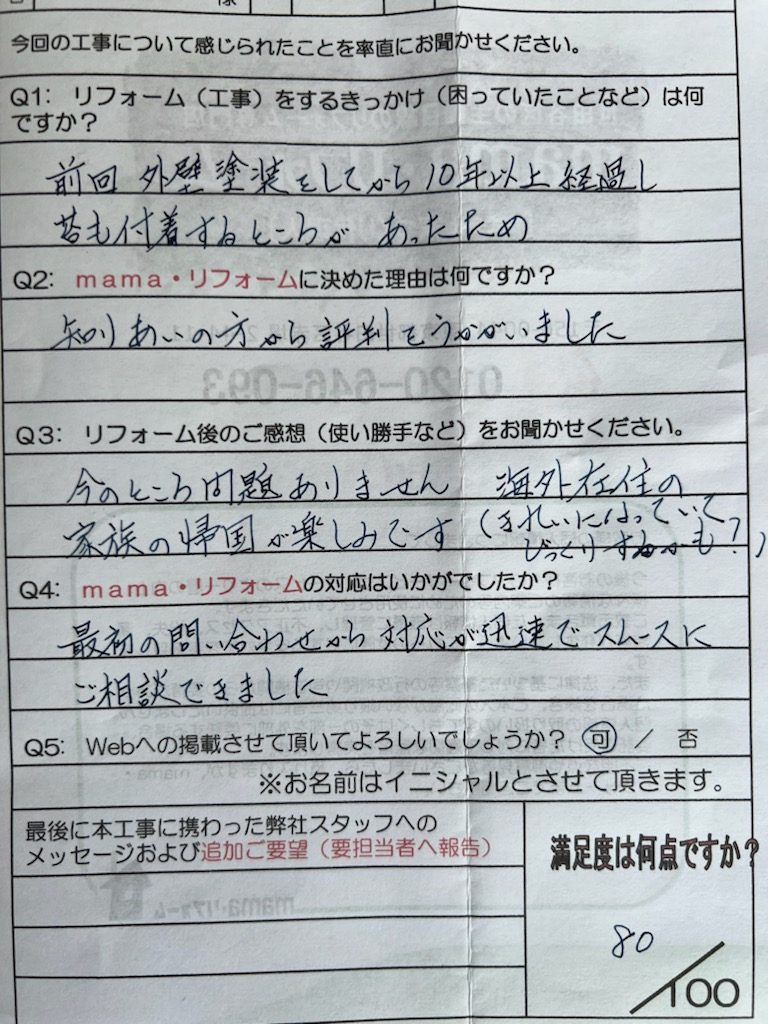 様
今回の工事について感じられたことを率直にお聞かせください。
Q1: リフォーム（工事）をするきっかけ（困っていたことなど）は何
ですか？
前回 外壁塗装をしてから10年以上経過し
苔も付着するところが あったため
Q2: mama・リフォームに決めた理由は何ですか？
知りあいの方から評判をうかがいました
Q3: リフォーム後のご感想（使い勝手など）をお聞かせください。
今のところ問題ありません 海外在住の
家族の帰国が楽しみです（きれいになっていて
びっくりするかも？）
Q4: mama・リフォームの対応はいかがでしたか？
最初の問い合わせから対応が迅速でスムースに
ご相談できました
Q5: Webへの掲載させて頂いてよろしいでしょうか？ 可 ／ 否
※お名前はイニシャルとさせて頂きます。
最後に本工事に携わった弊社スタッフへの
メッセージおよび追加ご要望（要担当者へ報告）
満足度は何点ですか？
80
／100